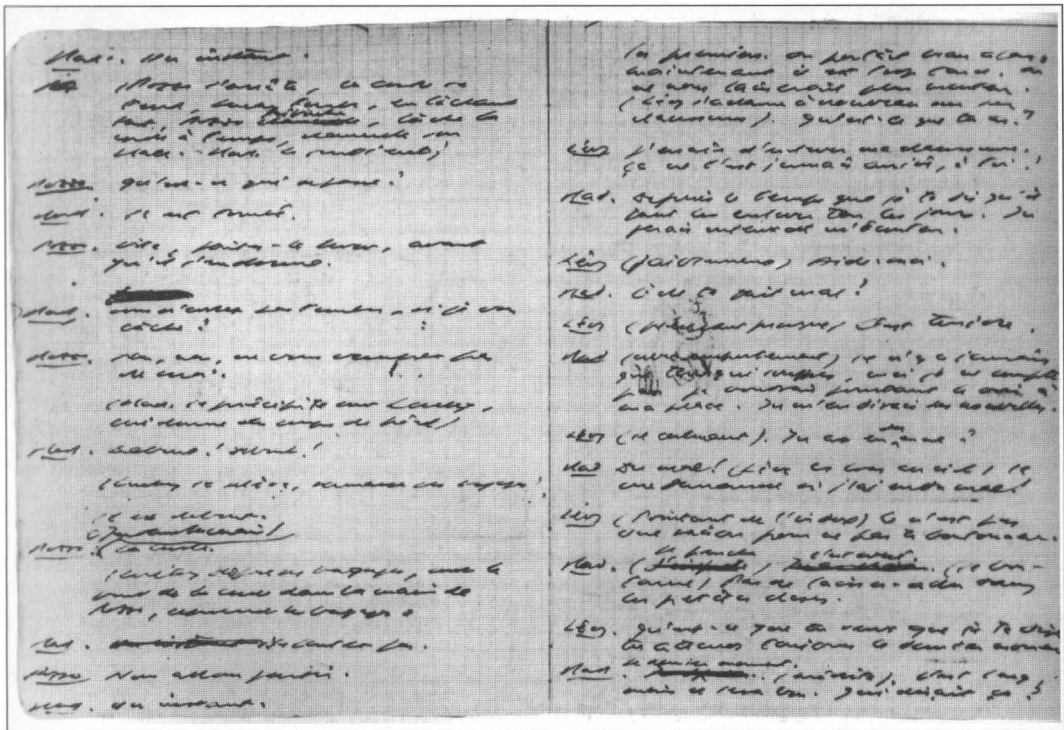 Vlad. Un instant.
(Pozzo s'arrête, la corde se
tend, Lucky tombe, en lâchant
tout, Pozzo lâche la
corde à temps, chancelle sur
place. Vlad. le soutient)
Pozzo. Qu'est-ce qui se passe?
Vlad. Il est tombé.
Pozzo. Vite, faites-le lever, avant
qu'il s'endorme.
Vlad. pas tomber, si je vous
lâche?
Pozzo. Non, non, ne vous occupez pas
de moi.
(Vlad. se précipite sur Lucky,
lui donne des coups de pied)
Vlad. Debout! Debout!
(Lucky se relève, ramasse ses bagages)
Il est debout.
Pozzo. La corde.
(Lucky dépose ses bagages, met le
bout de la corde dans la main de
Pozzo, les bagages)
Vlad.
Pozzo Nous allons partir.
Vlad. Un instant.
les premiers. On portait beau alors.
Maintenant il est trop tard. On
ne nous laisserait plus monter.
(Lévy s'acharne à nouveau sur sa
chaussure). Qu'est-ce que tu as?
Lévy J'essaie d'enlever ma chaussure.
Ça ne t'est jamais arrivé, à toi?
Vlad. Depuis le temps que je te dis qu'il
faut les enlever tous les jours. Tu
ferais mieux de m'écouter.
Lévy (faiblement) Aide-moi.
Vlad. Cela te fait mal?
Lévy C'est
Vlad (avec emportement) Il n'y a jamais
que toi qui souffres, moi je ne compte
pas. Je voudrais pourtant te voir à
ma place. Tu m'en dirais des nouvelles.
Lévy (se calmant). Tu as eu mal?
Vlad Du mal! Il
me demande si j'ai eu du mal!
Lévy (Pointant de l'index) Ce n'est pas
une raison pour ne pas te boutonner.
Vlad. (se penche) C'est vrai. (se bou-
tonne) Pas de laisser-aller dans
les petites choses.
Lévy. Qu'est-ce que tu veux que je te dise,
tu attends toujours le dernier moment
Vlad. Le dernier moment. (médite). C'est long,
mais ce sera bon. Qui disait ça?